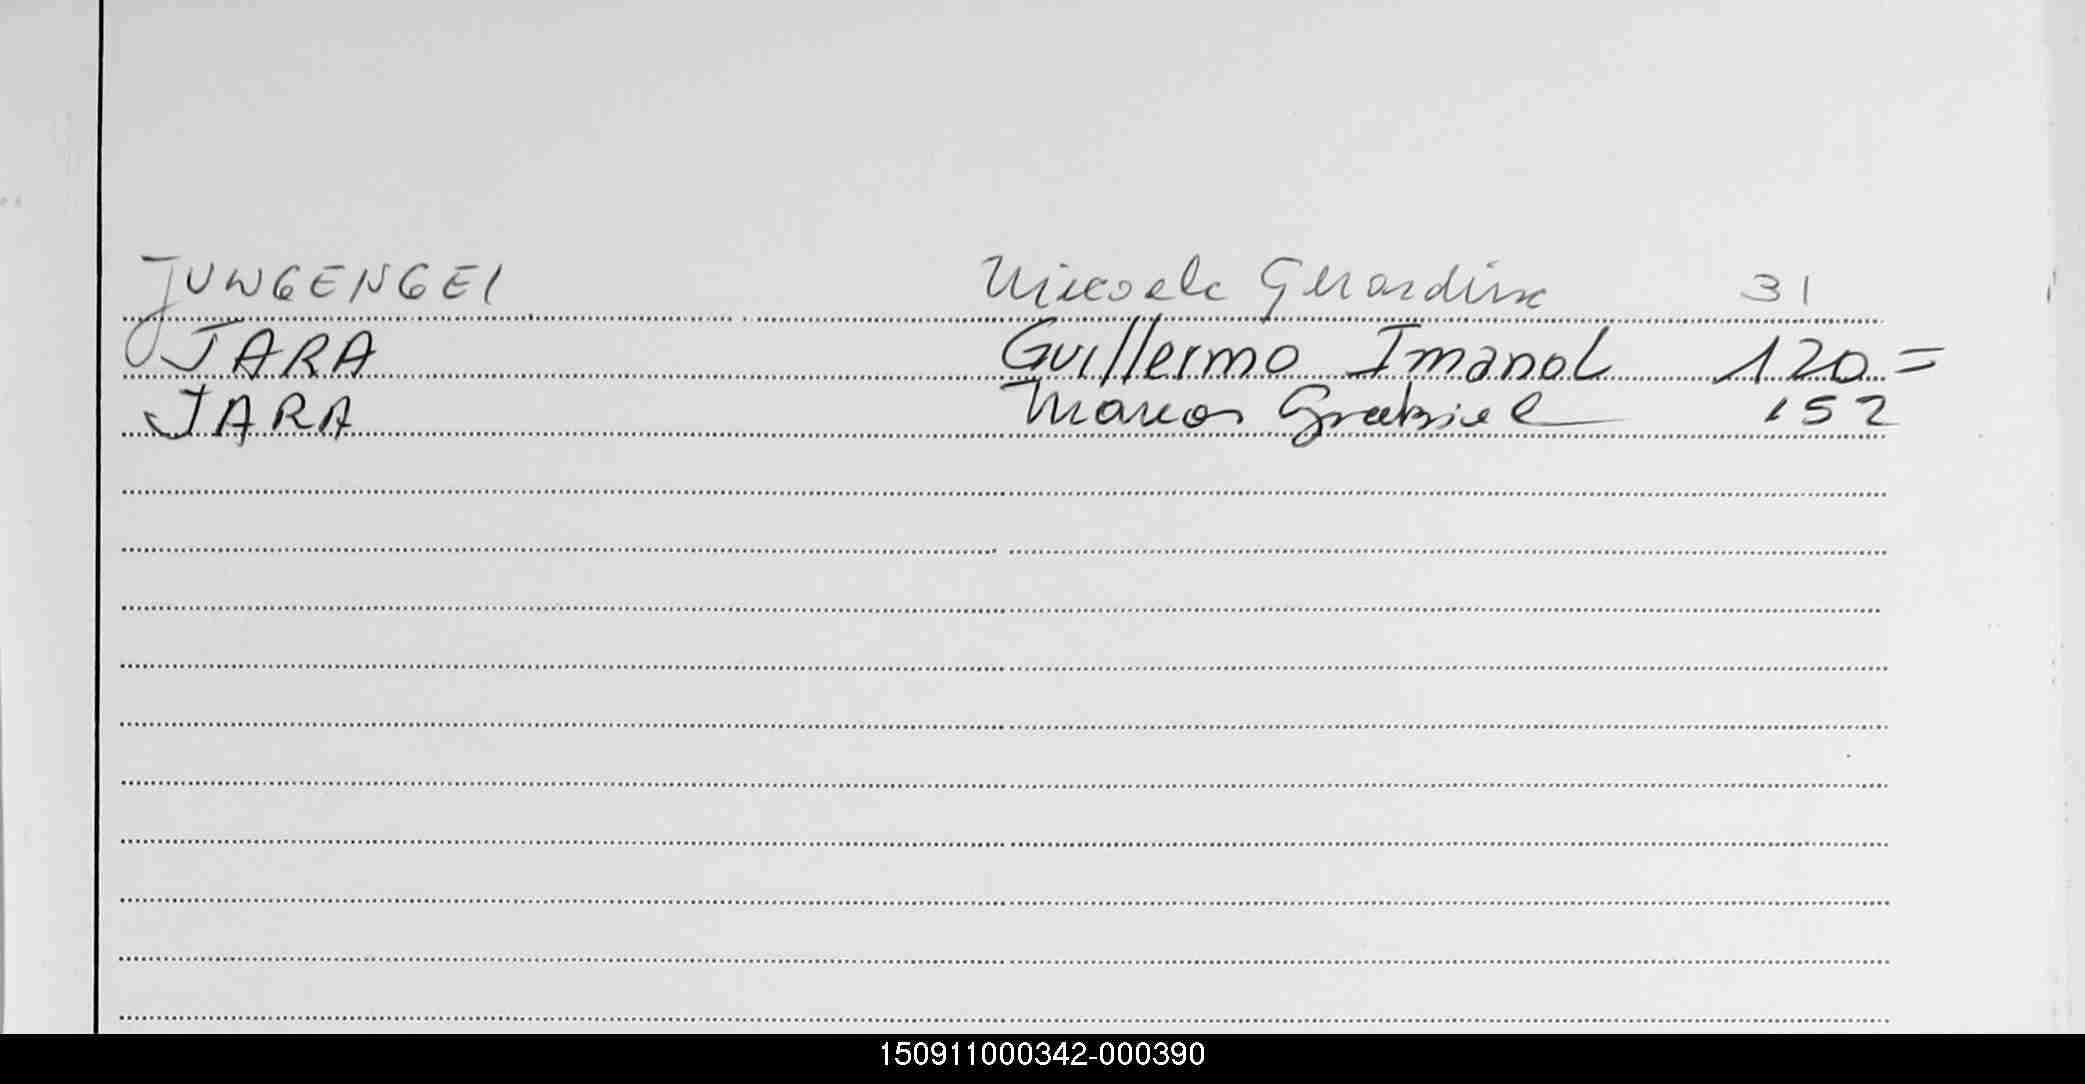 JUNGENGEL Micaela Gerardina 31
JARA Guillermo Imanol 120 =
JARA Marcos Gabriel 152
150911000342-000390